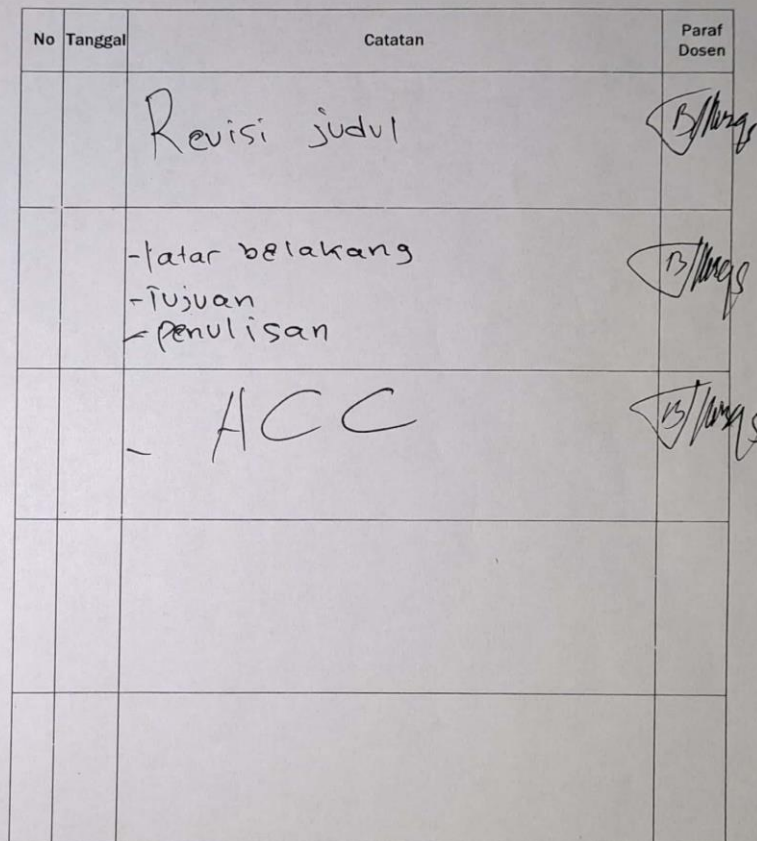 No Tanggal Catatan Paraf Dosen
Revisi judul
-latar belakang
-Tujuan
-penulisan
- ACC